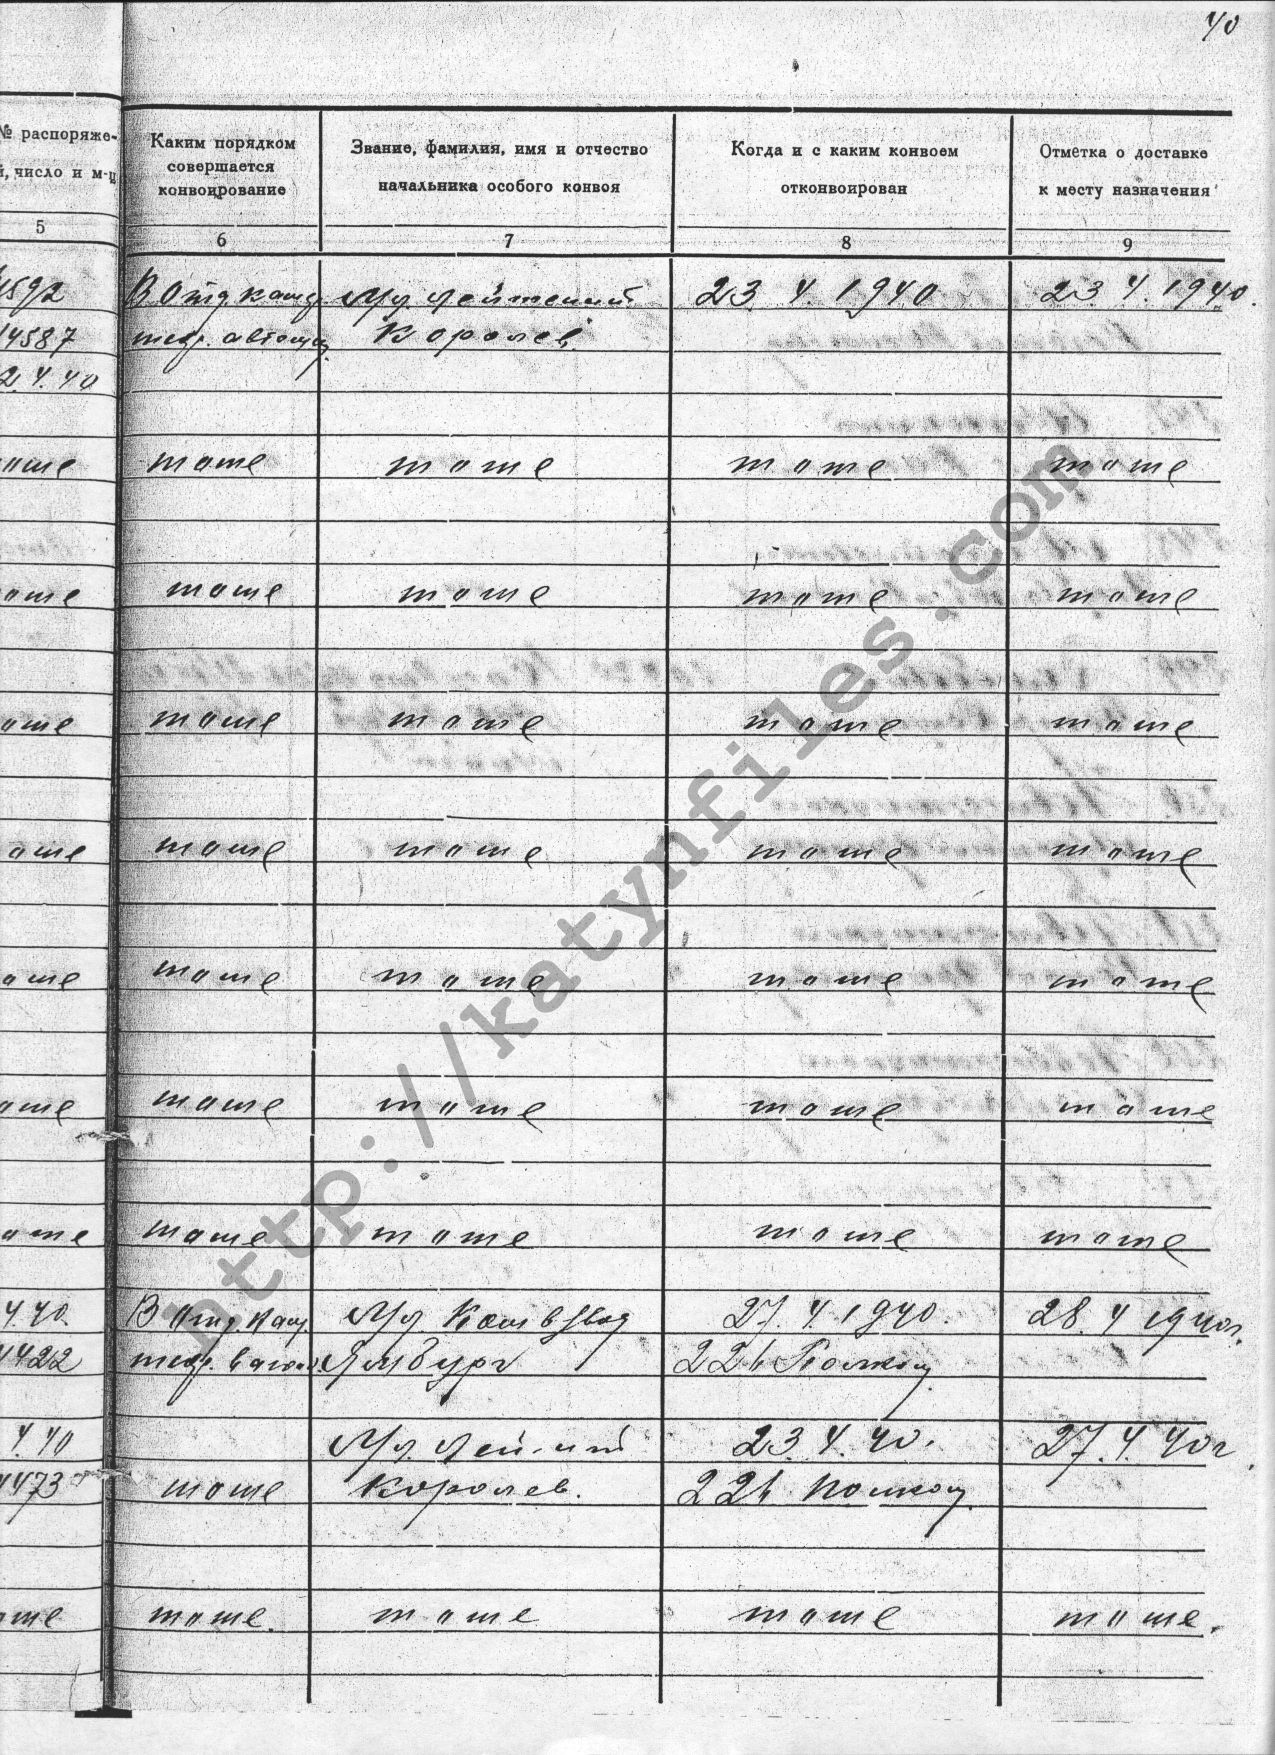 40
№ распоряже-
, число и м-ц
5
Каким порядком
совершается
конвоирование
6
Звание, фамилия, имя и отчество
начальника особого конвоя
7
Когда и с каким конвоем
отконвоирован
8
Отметка о доставке
к месту назначения
9
592 В отд. кам. Мл. лейтенант 23.4.1940 23.4.1940.
4587 Королев
2.4.40
тоже тоже тоже тоже
тоже тоже тоже тоже
тоже тоже тоже тоже
тоже тоже тоже тоже
тоже тоже тоже тоже
тоже тоже тоже тоже
тоже тоже тоже тоже
4.40. В отд. кам. Мл. Ком взвод 27.4.1940. 28.4
1422 Ямбург 221 Полком
4.40 Мл. лей-нт 23.4.40. 27.4.40г.
1473 тоже Королев. 221 полком.
тоже. тоже тоже тоже.
http://katynfiles.com